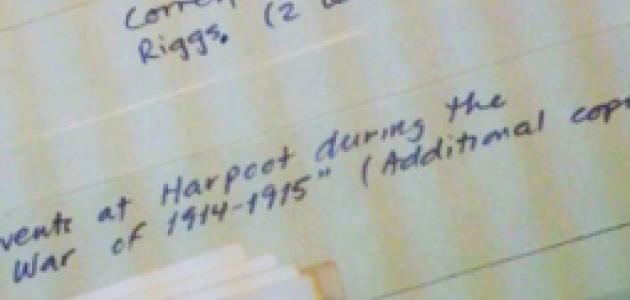 Corre
Riggs. (2
vents at Harpoot during the
War of 1914-1915" (Additional cop